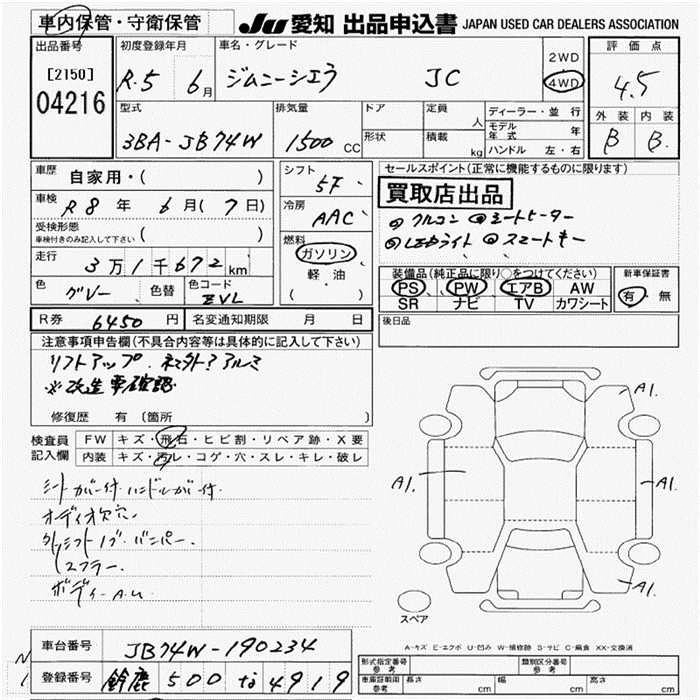 車内保管・守衛保管
JU 愛知 出品申込書 JAPAN USED CAR DEALERS ASSOCIATION
出品番号
[2150]
04216
初度登録年月
R.5 6月
車名・グレード
ジムニーシエラ JC
2WD
4WD
評価点
4.5
外装 内装
B B
型式
3BA-JB74W
排気量
1500 CC
ドア
形状
定員 人
積載 kg
ディーラー・並行
モデル年式 年
ハンドル 左・右
車歴 自家用・( )
車検 R8年 6月(7日)
受検形態
車検付きのみ記入して下さい ( )
走行 3万1千672km
色 グレー 色替 色コード ZVL
シフト 5F
冷房 AAC
燃料
ガソリン
軽・油
( )
セールスポイント(正常に機能するものに限ります)
買取店出品
◎クルコン ◎シートヒーター
◎LEDライト ◎スマートキー
装備品(純正品に限り○をつけてください)
PS PW エアB AW
SR ナビ TV カワシート
新車保証書
有・無
R券 6450円 名変通知期限 月 日
後日品
注意事項申告欄(不具合内容等は具体的に記入して下さい)
リフトアップ
アルミ
※改造車確認
修復歴 有 〔箇所 〕
検査員
記入欄
FW キズ・飛石・ヒビ割・リペア跡・X要
内装 キズ・汚レ・コゲ・穴・スレ・キレ・破レ
シートカバー付 ハンドルカバー付
オーディオ欠穴
外 シフトノブ バンパー
マフラー
ボディーA.U
A1.
A1.
A1.
A1.
スペア
A-キズ E-エクボ U-凹み W-補修跡 S-サビ C-腐食 XX-交換済
車台番号 JB74W-190234
登録番号 鈴鹿 500 な 4919
形式指定番号 参考
類別区分番号 参考
車庫証明取用 参考 長さ cm 幅 cm 高さ cm